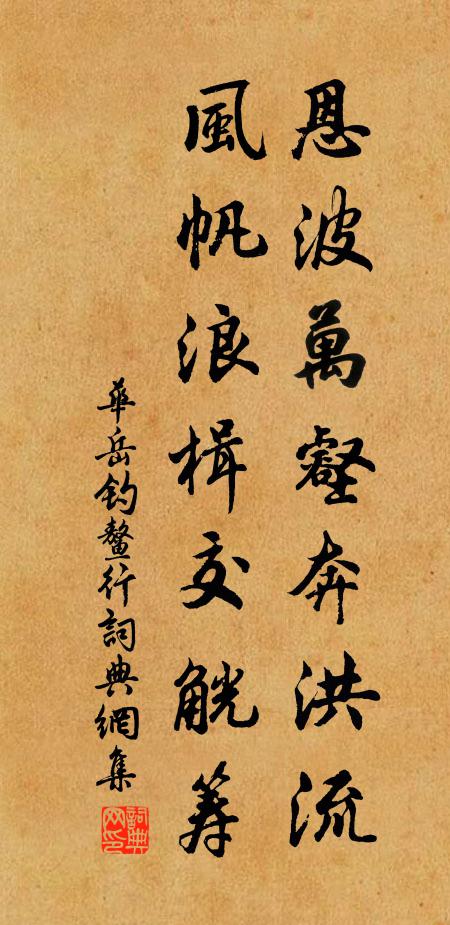 恩波萬壑奔洪流
風帆浪楫交觥筭
華岳釣鰲行詞典網集
詞典網印